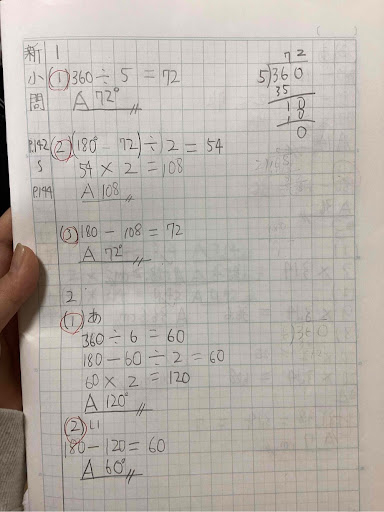 新小周
P.142
S
P.144
1
(1) 360÷5=72
A 72°
72
5)360
35
10
10
0
(2) (180°-72)÷2=54
54×2=108
A 108
(3) 180-108=72
A 72°
2
(1) あ
360÷6=60
180-60÷2=60
60×2=120
A 120°
(2) い
180-120=60
A 60°